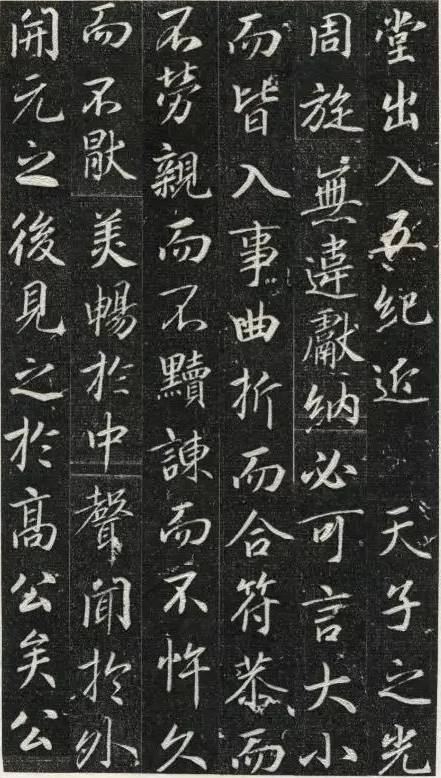 堂出入五紀近　天子之光
周旋無違獻納必可言大小
而皆入事曲折而合符恭而
不勞親而不黷諫而不忤久
而不猒美暢於中聲聞於外
開元之後見之於高公矣公